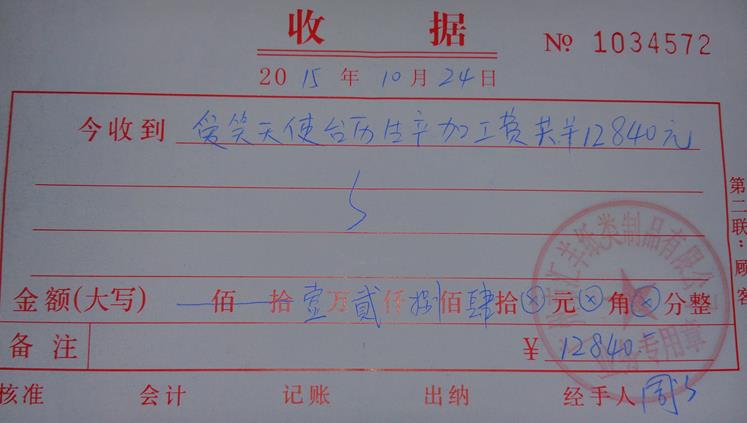 收 据
№ 1034572
2015年10月24日
今收到 爱笑天使台历生产加工费共计12840元
金额(大写) 佰 拾壹万贰仟捌佰肆拾⊗元⊗角⊗分整
备注 ¥ 12840元
核准 会计 记账 出纳 经手人 周
第二联:顾客
汇羊纸类制品有限公
专用章